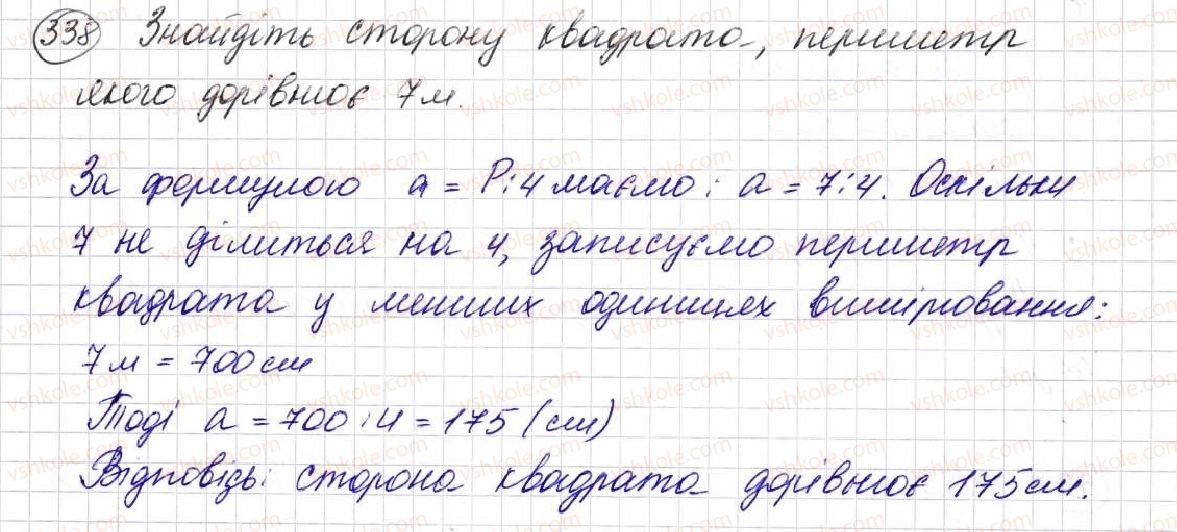 338 Знайдіть сторону квадрата, периметр
якого дорівнює 7 м.
За формулою a = P:4 маємо: a = 7:4. Оскільки
7 не ділиться на 4, записуємо периметр
квадрата у менших одиницях вимірювання:
7 м = 700 см
Тоді a = 700:4 = 175 (см)
Відповідь: сторона квадрата дорівнює 175 см.